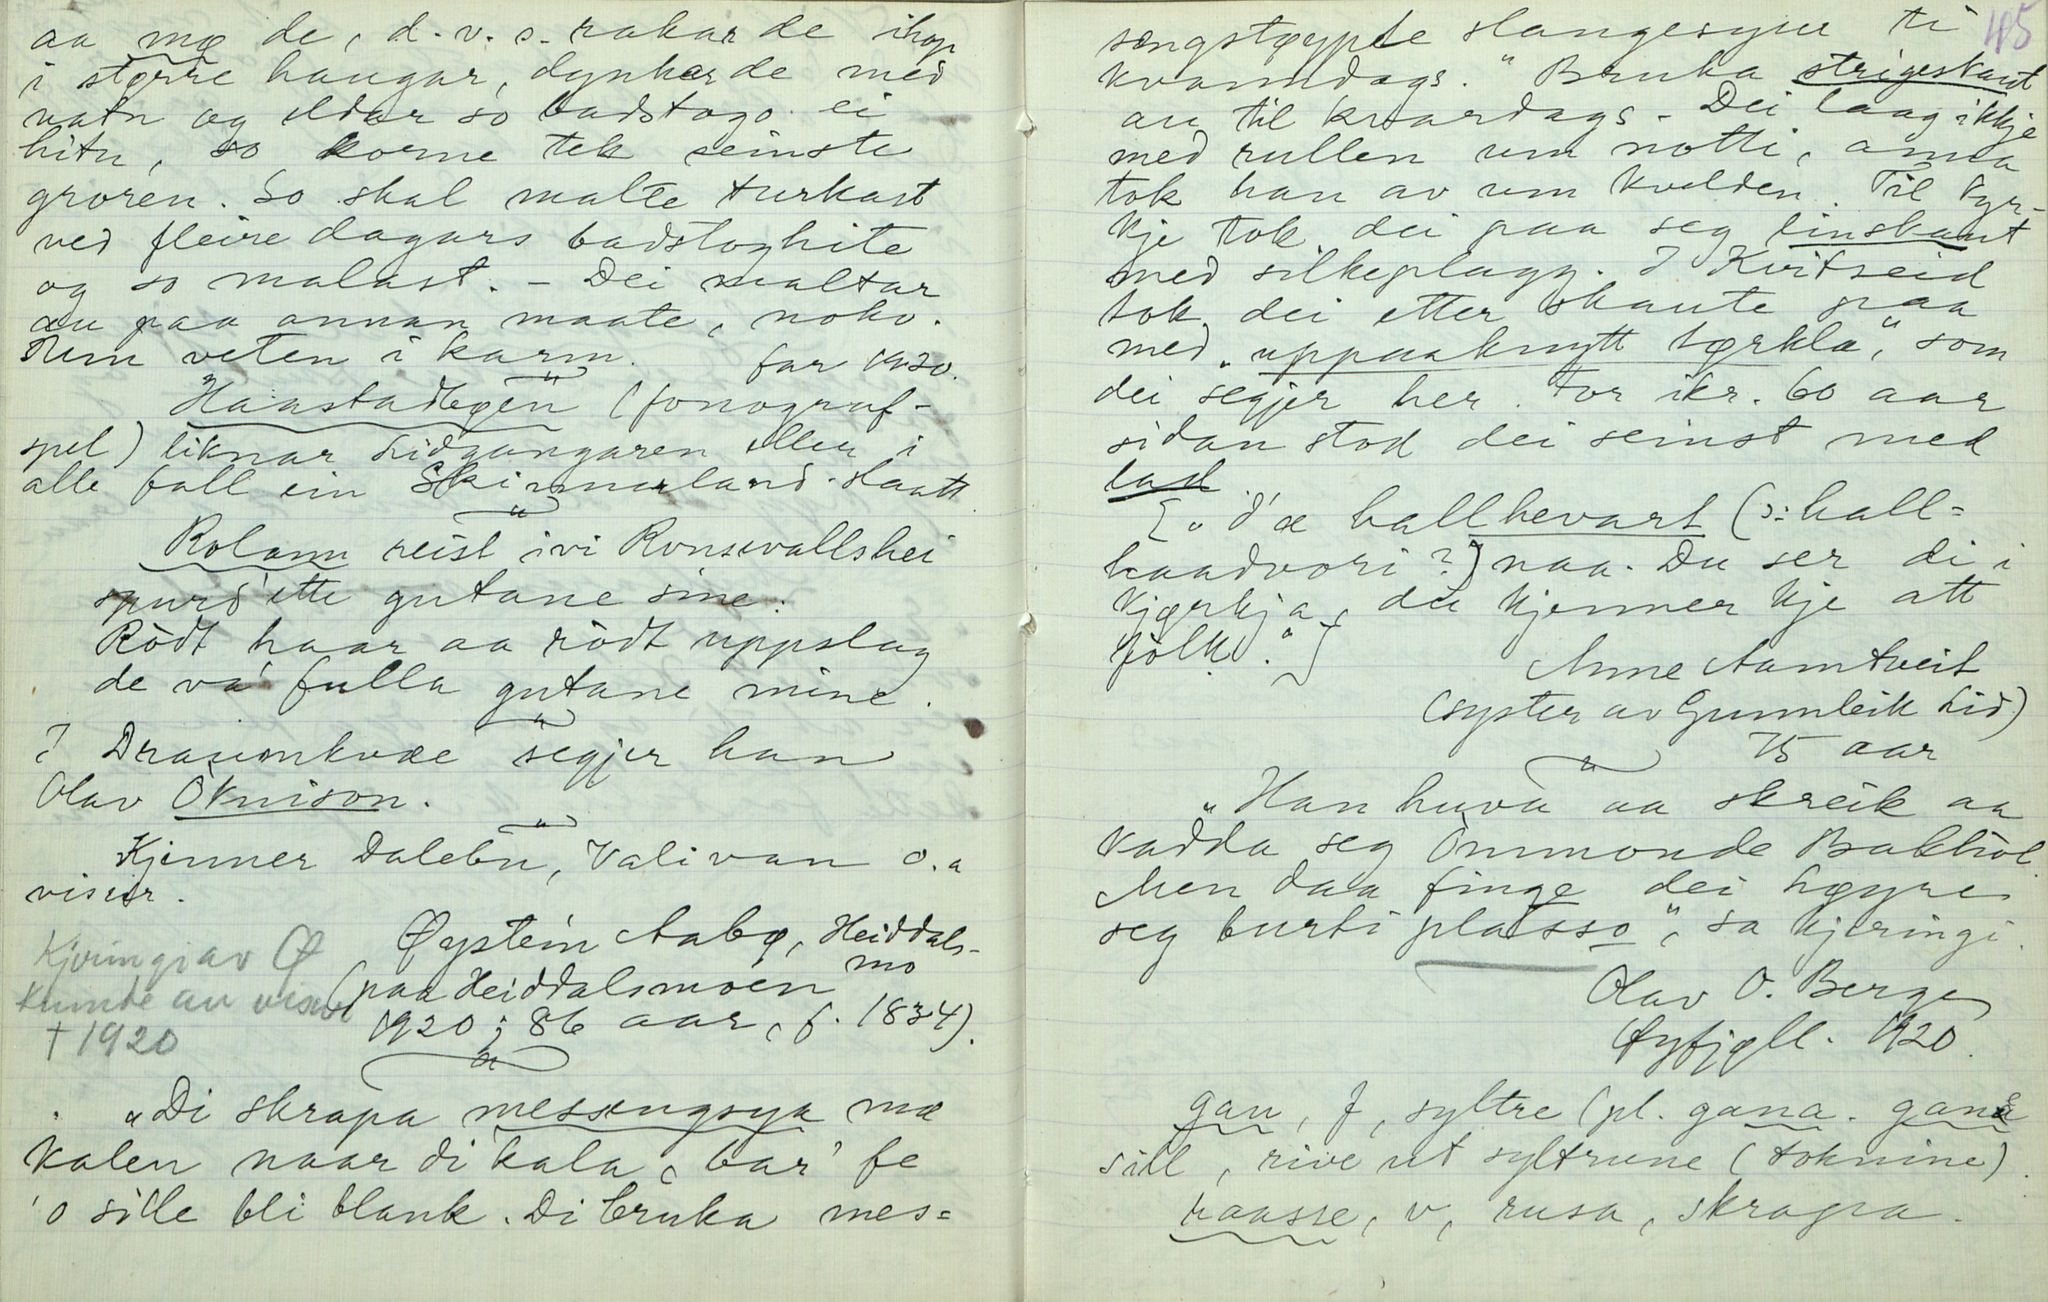 aa mæ de, d.v.s. rakar de ihop
i større haugar, dynkar de med
vatn og eldar so badstogo ei
hitu, so korne tek seinste
groren. So skal malte turkast
ved fleire dagars badstoghite
og so malast. – Dei maltar
au paa annan maate, noko.
um veten i karm. far 1920.
Haastadlegen (fonograf-
spel) liknar Lidgangaren eller i
alle fall ein Skinnarland-slaatt
Rolann reist ivi Runsevallshei
spurd' ette gutane sine:
Rödt haar aa rödt uppslag
de va' fulla gutane mine.
I Draumkvæe segjer han
Olav Òknison.
Kjenner Dalebu, Valivan o.a
visur.
Øystein Aabø, Heiddals-
mo
(paa Heiddalsmoen
1920; 86 aar, f. 1834).
Kjæringi av Ø
kunde au visur
† 1920
"Di skrapa messengsya mæ
kalen naar di kala, bar' fe
'o sille bli blank. Di bruka mes=
45
sengstøypte slangesyur ti
kvanndags." Bruka strigeskaut
au til kvardags – Dei laag ikkje
med rullen um notti, anna
tok han av um kvelden. Til kyr-
kje tok dei paa seg linskaut
med silkeplagg. I Kvitseid
tok dei etter skaute paa
med "uppaaknytt tørkla", som
dei segjer her. For ikr. 60 aar
sidan stod dei seinst med
lad
{"d'æ hallhevart (ɔ: hall=
haadvori?) naa. Du ser di i
kjørkja, du kjenner kje att
folk."}
Anne Aamtveit
(syster av Gunnleik Lid)
75 aar
"Han huva aa skreik aa
kadda seg Òmmonde Bakhól.
Men daa finge dei høyre
seg burti plásso", sa kjeringi.
Olav O. Berge
Øyfjell. 1920.
gan, f, syltre (pl. gana. gana
sill, rive ut syltrune (toknine).
raasse, v, rusa, skrapa.